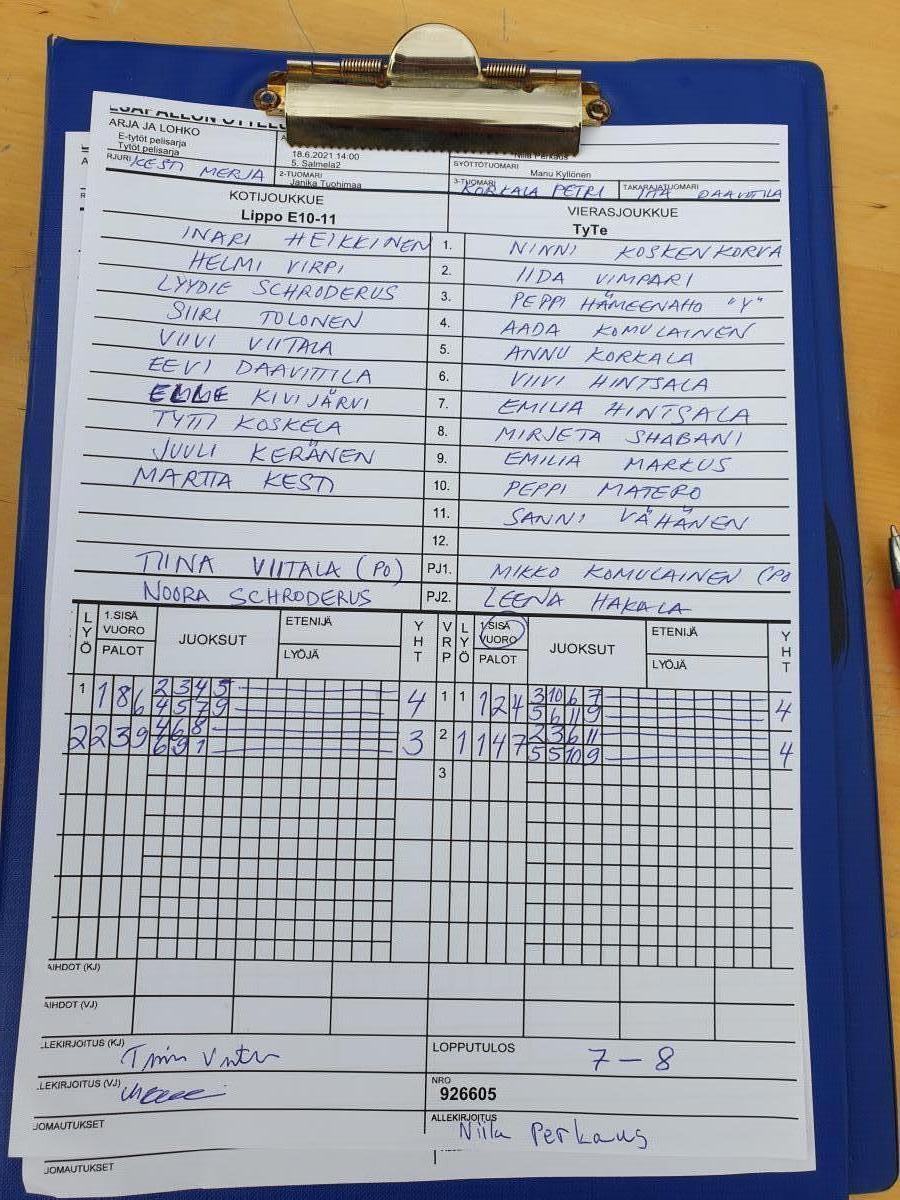 ARJA JA LOHKO
E-tytöt pelisarja
Tytöt pelisarja
18.6.2021 14:00
5. Salmela2
Niila Perkaus
SYÖTTÖTUOMARI
Manu Kyllönen
RJURI KESTI MERJA
2-TUOMARI
Janika Tuohimaa
3-TUOMARI
KORKALA PETRI
TAKARAJATUOMARI
DAAVITTILA
KOTIJOUKKUE
Lippo E10-11
VIERASJOUKKUE
TyTe
INARI HEIKKINEN 1. NINNI KOSKENKORVA
HELMI VIRPI 2. IIDA VIMPARI
LYYDIE SCHRODERUS 3. PEPPI HÄMEENAHO "Y"
SIIRI TOLONEN 4. AADA KOMULAINEN
VIIVI VIITALA 5. ANNU KORKALA
EEVI DAAVITTILA 6. VIIVI HINTSALA
KIVIJÄRVI 7. EMILIA HINTSALA
TYTTI KOSKELA 8. MIRJETA SHABANI
JUULI KERÄNEN 9. EMILIA MARKUS
MARTTA KESTI 10. PEPPI MATERO
11. SANNI VÄHÄNEN
12.
TIINA VIITALA (PO) PJ1. MIKKO KOMULAINEN (PO
NOORA SCHRODERUS PJ2. LEENA HAKALA
LYÖ 1.SISÄ VUORO PALOT JUOKSUT ETENIJÄ LYÖJÄ YHT VRP LYÖ 1.SISÄ VUORO PALOT JUOKSUT ETENIJÄ LYÖJÄ YHT
1 1 8 6 2 3 4 5 4 1 1 1 2 4 3 10 6 7 4
4 5 7 9 5 6 11 9
2 2 3 9 4 6 8 3 2 1 1 4 7 2 3 6 11 4
6 9 1 5 5 10 9
3
AIHDOT (KJ)
AIHDOT (VJ)
LLEKIRJOITUS (KJ)
LOPPUTULOS 7-8
LLEKIRJOITUS (VJ)
NRO
926605
JOMAUTUKSET
ALLEKIRJOITUS
Niila Perkaus
JOMAUTUKSET